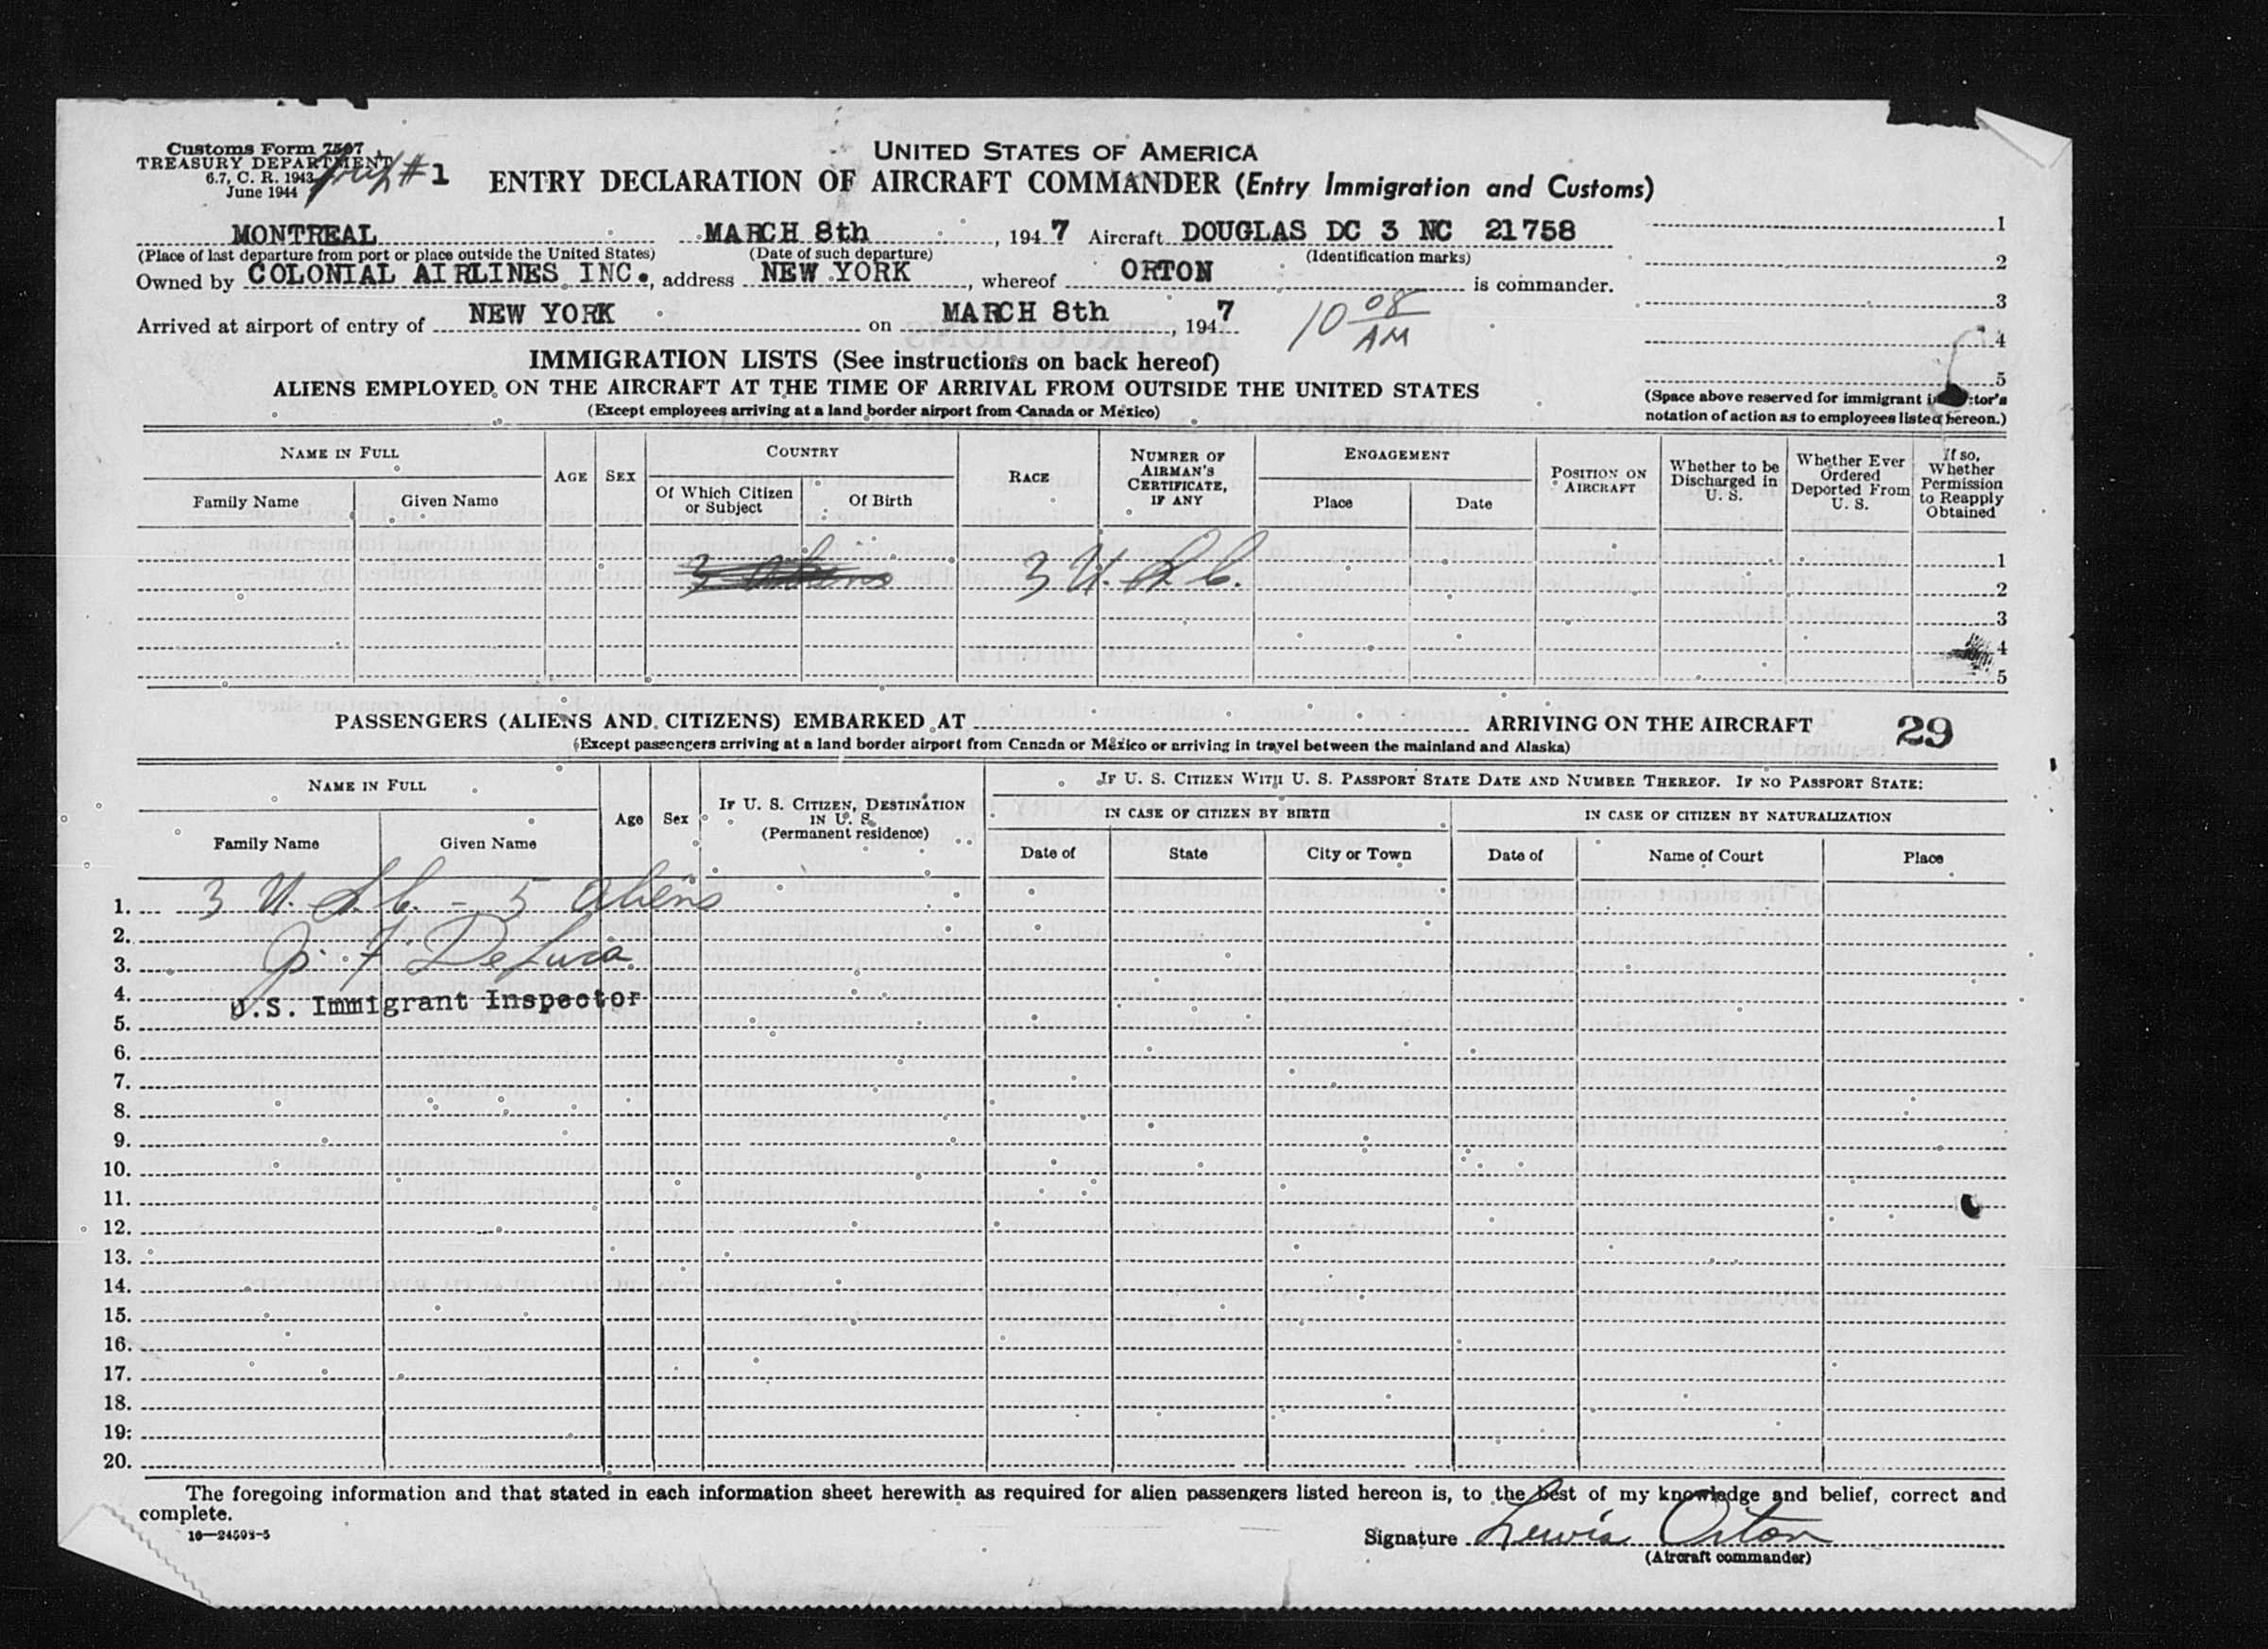 Customs Form 7507
TREASURY DEPARTMENT
6.7, C. R. 1943
June 1944
#1
UNITED STATES OF AMERICA
ENTRY DECLARATION OF AIRCRAFT COMMANDER (Entry Immigration and Customs)
MONTREAL MARCH 8th, 1947 Aircraft DOUGLAS DC 3 NC 21758
(Place of last departure from port or place outside the United States) (Date of such departure) (Identification marks)
Owned by COLONIAL AIRLINES INC., address NEW YORK, whereof ORTON is commander.
Arrived at airport of entry of NEW YORK on MARCH 8th, 1947 10 08 AM
1
2
3
4
5
(Space above reserved for immigrant
notation of action as to employees listed hereon.)
IMMIGRATION LISTS (See instructions on back hereof)
ALIENS EMPLOYED ON THE AIRCRAFT AT THE TIME OF ARRIVAL FROM OUTSIDE THE UNITED STATES
(Except employees arriving at a land border airport from Canada or Mexico)
NAME IN FULL
Family Name Given Name
AGE SEX
COUNTRY
Of Which Citizen or Subject
Of Birth
RACE
NUMBER OF AIRMAN'S CERTIFICATE, IF ANY
ENGAGEMENT
Place Date
POSITION ON AIRCRAFT
Whether to be Discharged in U. S.
Whether Ever Ordered Deported From U. S.
If so, Whether Permission to Reapply Obtained
1
3 aliens 3 U.S.C.
2
3
4
5
PASSENGERS (ALIENS AND CITIZENS) EMBARKED AT ARRIVING ON THE AIRCRAFT 29
(Except passengers arriving at a land border airport from Canada or Mexico or arriving in travel between the mainland and Alaska)
NAME IN FULL
Family Name Given Name
Age Sex
IF U. S. CITIZEN, DESTINATION IN U. S.
(Permanent residence)
IF U. S. CITIZEN WITH U. S. PASSPORT STATE DATE AND NUMBER THEREOF. IF NO PASSPORT STATE:
IN CASE OF CITIZEN BY BIRTH
Date of State City or Town
IN CASE OF CITIZEN BY NATURALIZATION
Date of Name of Court Place
1. 3 U.S.C. - 5 aliens
2.
3. J. F. DeLuca
4. U.S. Immigrant Inspector
5.
6.
7.
8.
9.
10.
11.
12.
13.
14.
15.
16.
17.
18.
19.
20.
The foregoing information and that stated in each information sheet herewith as required for alien passengers listed hereon is, to the best of my knowledge and belief, correct and
complete.
16—24593-5
Signature Lewis Orton
(Aircraft commander)